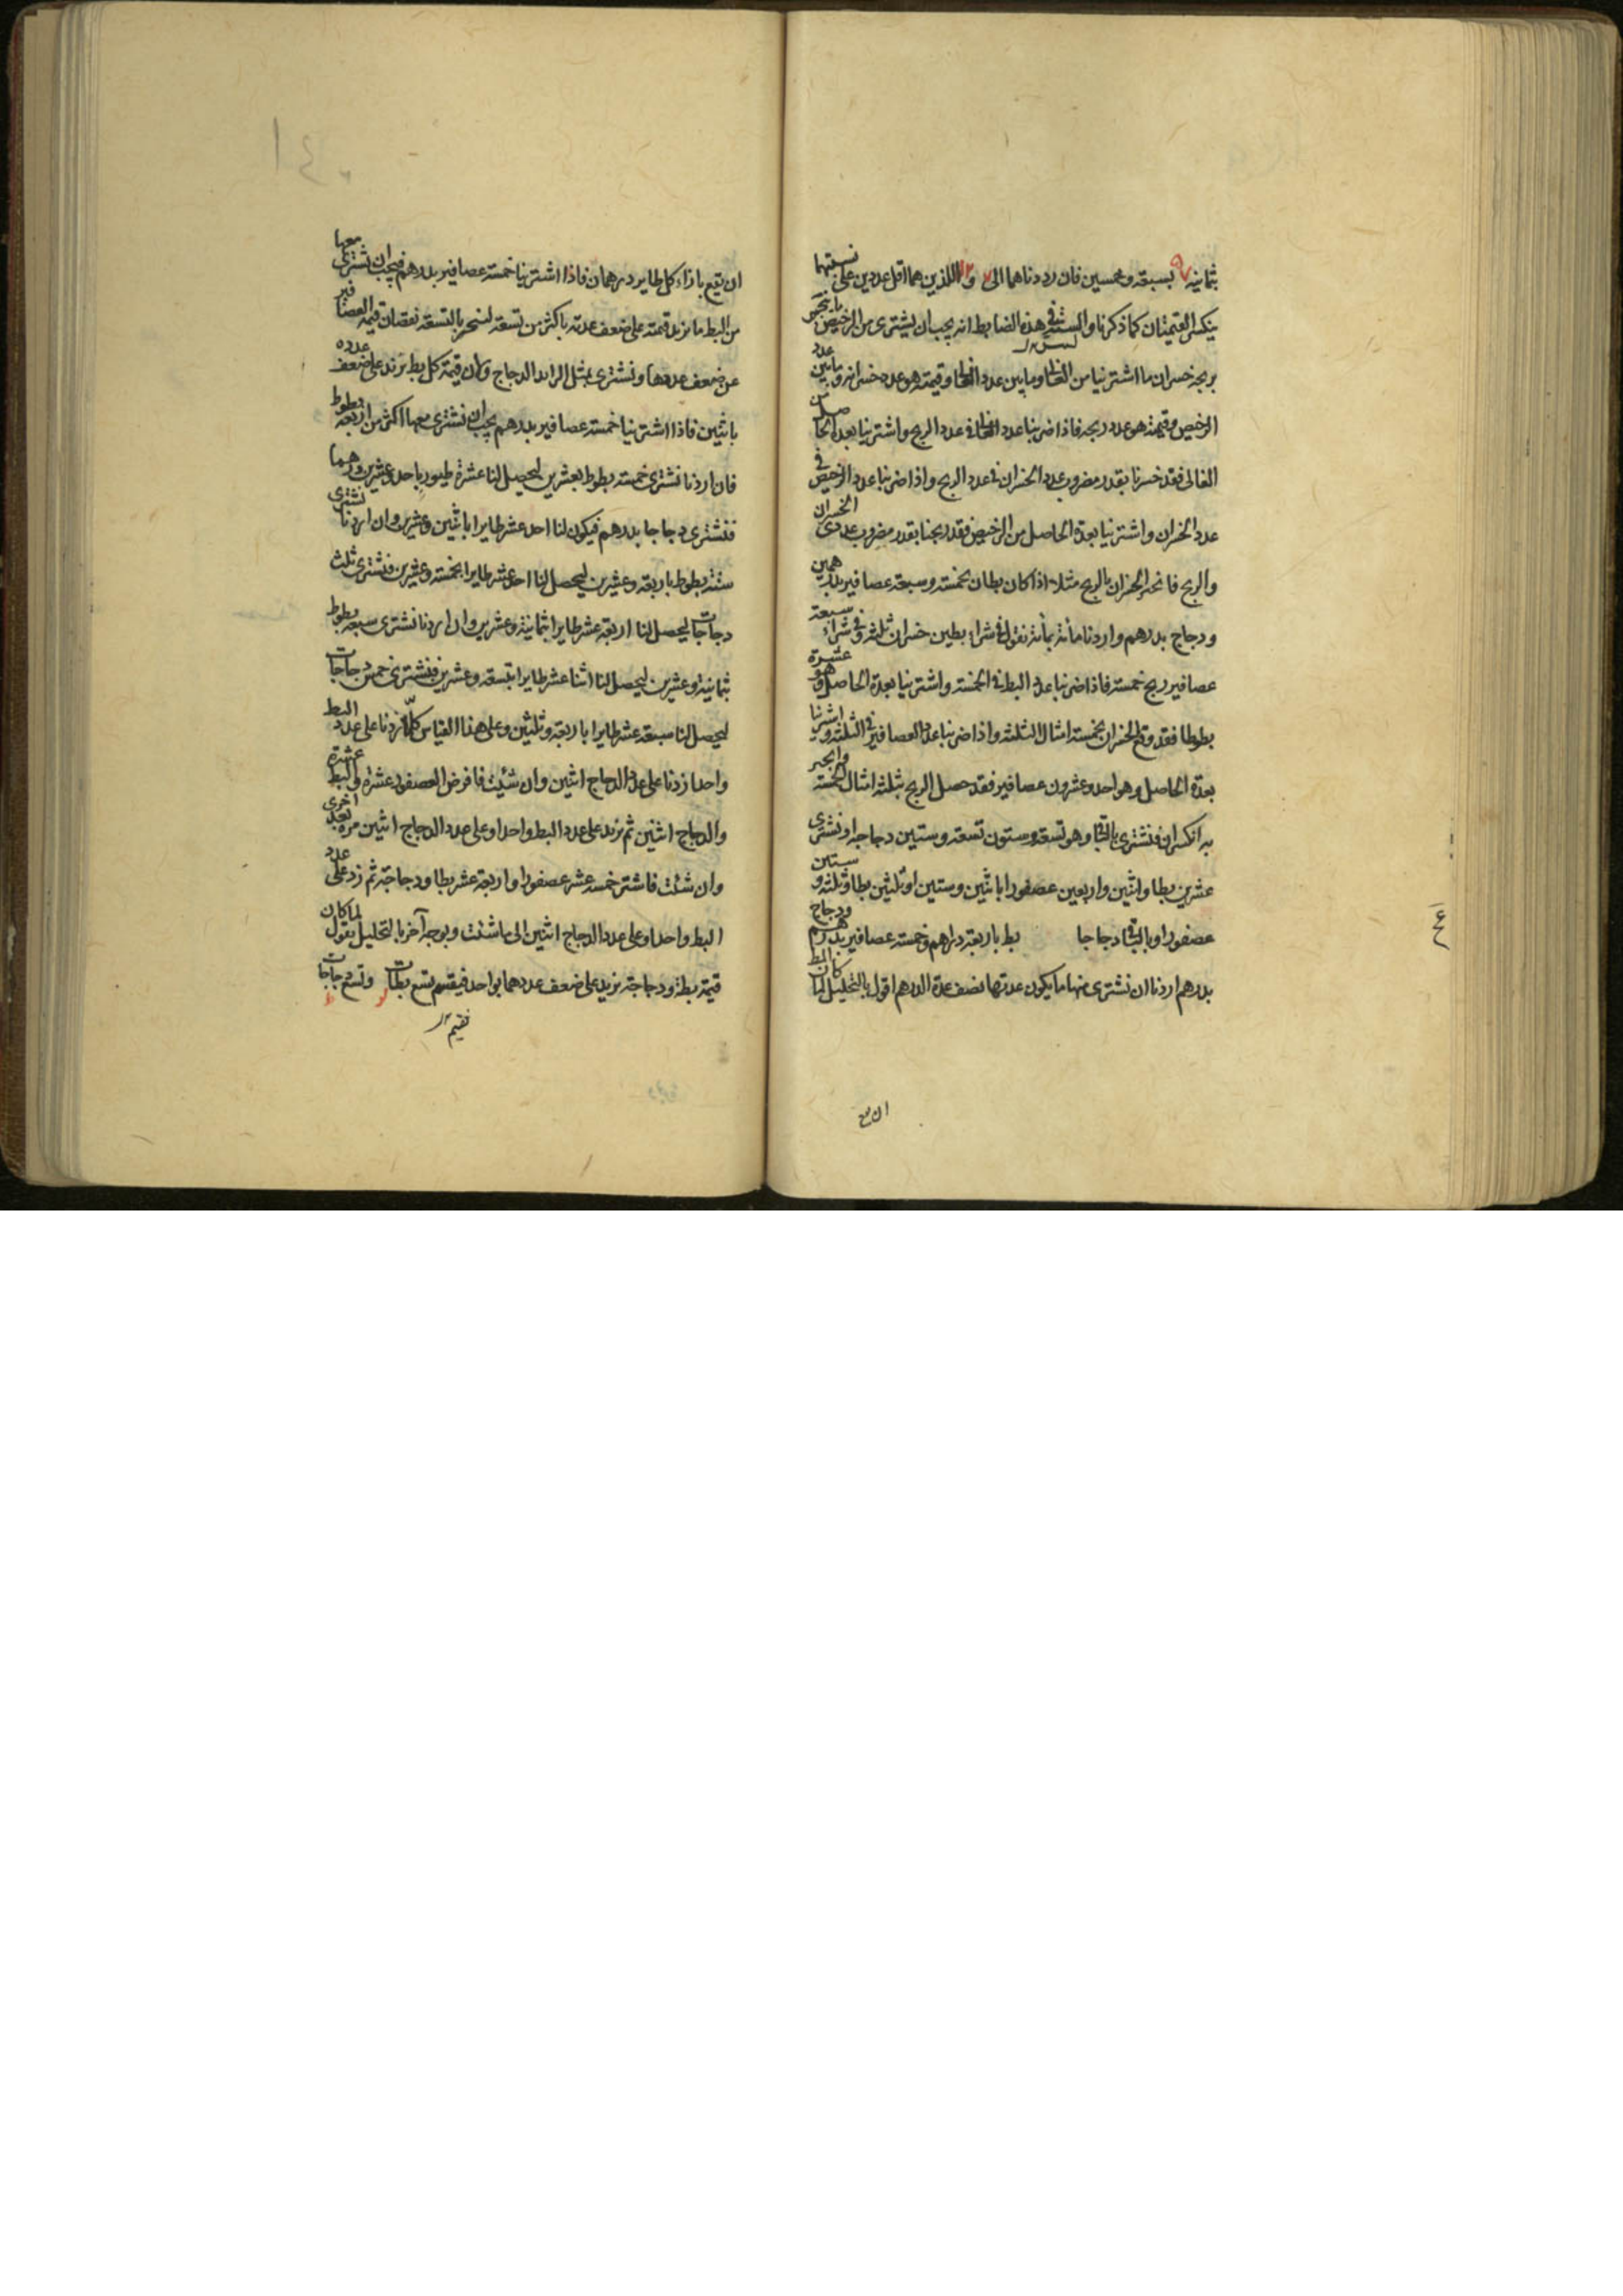 ثمانية ٥٧ بسبعة وخمسين فان رددناهما الى ٧ و ١٢ اللذين هما اقل عددين على نسبتهما
ينكسر القيمتان كما ذكرنا والسر فى هذه الضابط انه يجب ان يشترى من الرخيص ما ينجبر
بربحه خسران ما اشترينا من الغالى وما بين عدد الغالى وقيمته هو عدد خسرانه وما بين عدد
الرخيص وقيمته هو عدد ربحه فاذا ضربنا عدد الغالى فى عدد الربح واشترينا بعدد الحاصل من
الغالى فقد خسرنا بقدر مضروب عدد الخسران فى عدد الربح واذا ضربنا عدد الرخيص فى
عدد الخسران واشترينا بعدة الحاصل من الرخيص فقد ربحنا بقدر مضروب عددى الخسران
والربح فانجبر الخسران بالربح مثلا اذا كان بطان بخمسة وسبعة عصافير بدرهمين
ودجاج بدرهم واردنا مائة بمائة نقول فى شراء بطين خسران ثلثة وفى شراء سبعة
عصافير ربح خمسة فاذا ضربنا عدد البط فى الخمسة واشترينا بعدة الحاصل وهو عشرة
بطوطا فقد وقع الخسران بخمسة امثال الثلثة واذا ضربنا عدد العصافير فى الثلثة واشترينا
بعدة الحاصل وهو احد وعشرون عصافير فقد حصل الربح بثلثة امثال الخمسة وانجبر
به انكسران فنشترى بالباقى وهو تسعة وستون تسعة وستين دجاجه او نشترى
عشرين بطا واثنين واربعين عصفورا باثنين وستين او ثلثين بطا وثلثة وستين
عصفورا وبالباقى دجاجا بط باربعة دراهم وخمسة عصافير بدرهم ودجاج
بدرهم اردنا ان نشترى منها ما يكون عدتها نصف عدة الدرهم اقول بالتحليل لما كان البط
ان يقع
ان يقع بازاء كل طاير درهمان فاذا اشترينا خمسة عصافير بدرهم فيجب ان نشترى معها
من البط ما يزيد قيمته على ضعف عدته باكثر من تسعة لنجبر بالتسعة نقصان قيمة العصافير
عن ضعف عددها ونشترى بمثل الزايد الدجاج ولان قيمة كل بط تزيد على ضعف عدده
باثنين فاذا اشترينا خمسة عصافير بدرهم يجب ان نشترى معها اكثر من اربعة بطوط
فان اردنا نشترى خمسة بطوط بعشرين ليحصل لنا عشرة طيور باحد وعشرين درهما
فنشترى دجاجا بدرهم فيكون لنا احد عشر طايرا باثنين وعشرين وان اردنا نشترى
ستة بطوط باربعة وعشرين ليحصل لنا احد عشر طايرا بخمسة وعشرين فنشترى ثلث
دجاجات ليحصل لنا اربعة عشر طايرا بثمانية وعشرين وان اردنا نشترى سبعة بطوط
بثمانية وعشرين ليحصل لنا اثنا عشر طايرا بتسعة وعشرين فنشترى خمس دجاجات
ليحصل لنا سبعة عشر طايرا باربعة وثلثين وعلى هذا القياس كلما زدنا على عدد البط
واحدا زدنا على عدد الدجاج اثنين وان شئت فافرض العصفور عشرة والبط عشرة
والدجاج اثنين ثم نزيد على عدد البط واحدا وعلى عدد الدجاج اثنين مرة بعد اخرى
وان شئت فاشتر خمسة عشر عصفورا واربعة عشر بطا ودجاجة ثم زد على عدد
البط واحدا وعلى عدد الدجاج اثنين الى ما شئت وبوجه آخر بالتحليل نقول لما كان
قيمة بطة ودجاجة يزيد على ضعف عددهما بواحد فبقسم تسع بطات وتسع دجاجات